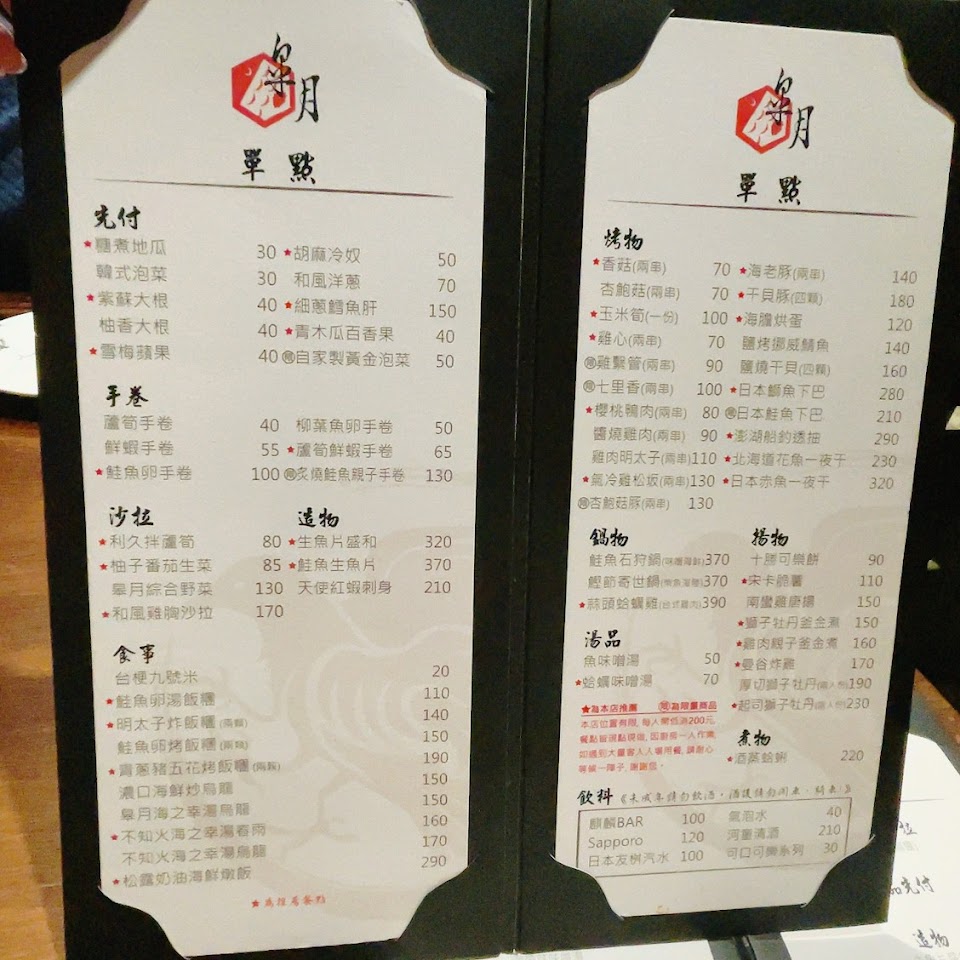 皐月
單點
先付
★糖煮地瓜 30
韓式泡菜 30
★紫蘇大根 40
柚香大根 40
★雪梅蘋果 40
★胡麻冷奴 50
和風洋蔥 70
★細蔥鱈魚肝 150
★青木瓜百香果 40
限自家製黃金泡菜 50
手卷
蘆筍手卷 40
鮮蝦手卷 55
★鮭魚卵手卷 100
柳葉魚卵手卷 50
★蘆筍鮮蝦手卷 65
限炙燒鮭魚親子手卷 130
沙拉
★利久拌蘆筍 80
★柚子番茄生菜 85
皐月綜合野菜 130
★和風雞胸沙拉 170
造物
★生魚片盛和 320
★鮭魚生魚片 370
天使紅蝦刺身 210
食事
台梗九號米 20
★鮭魚卵湯飯糰 110
★明太子炸飯糰(兩顆) 140
鮭魚卵烤飯糰(兩顆) 150
★青蔥豬五花烤飯糰(兩顆) 190
濃口海鮮炒烏龍 150
皐月海之幸湯烏龍 150
★不知火海之幸湯春雨 160
不知火海之幸湯烏龍 170
★松露奶油海鮮燉飯 290
★為推薦餐點
皐月
單點
烤物
★香菇(兩串) 70
杏鮑菇(兩串) 70
★玉米筍(一份) 100
★雞心(兩串) 70
限雞繫管(兩串) 90
限七里香(兩串) 100
★櫻桃鴨肉(兩串) 80
醬燒雞肉(兩串) 90
雞肉明太子(兩串) 110
★氣冷雞松坂(兩串) 130
限杏鮑菇豚(兩串) 130
★海老豚(兩串) 140
★干貝豚(四顆) 180
★海膽烘蛋 120
鹽烤挪威鯖魚 140
鹽燒干貝(四顆) 160
★日本鰤魚下巴 280
限日本鮭魚下巴 210
★澎湖船釣透抽 290
★北海道花魚一夜干 230
★日本赤魚一夜干 320
鍋物
鮭魚石狩鍋(味噌海鮮) 370
鰹節寄世鍋(柴魚海鮮) 370
★蒜頭蛤蠣雞(台式雞肉) 390
湯品
魚味噌湯 50
★蛤蠣味噌湯 70
★為本店推薦 限為限量商品
本店位置有限,每人需低消200元
餐點皆現點現做,因廚房一人作業,
如遇到大量客人入場用餐,請耐心
等候一陣子,謝謝您。
揚物
十勝可樂餅 90
★宋卡脆薯 110
南蠻雞唐揚 150
★獅子牡丹釜金煮 150
★雞肉親子釜金煮 160
★曼谷炸雞 170
厚切獅子牡丹(兩人份) 190
★起司獅子牡丹(兩人份) 230
煮物
★酒蒸蛤蜊 220
飲料《未成年請勿飲酒,酒後請勿開車、騎車!》
麒麟BAR 100
Sapporo 120
日本友桝汽水 100
氣泡水 40
河童清酒 210
可口可樂系列 30
造物